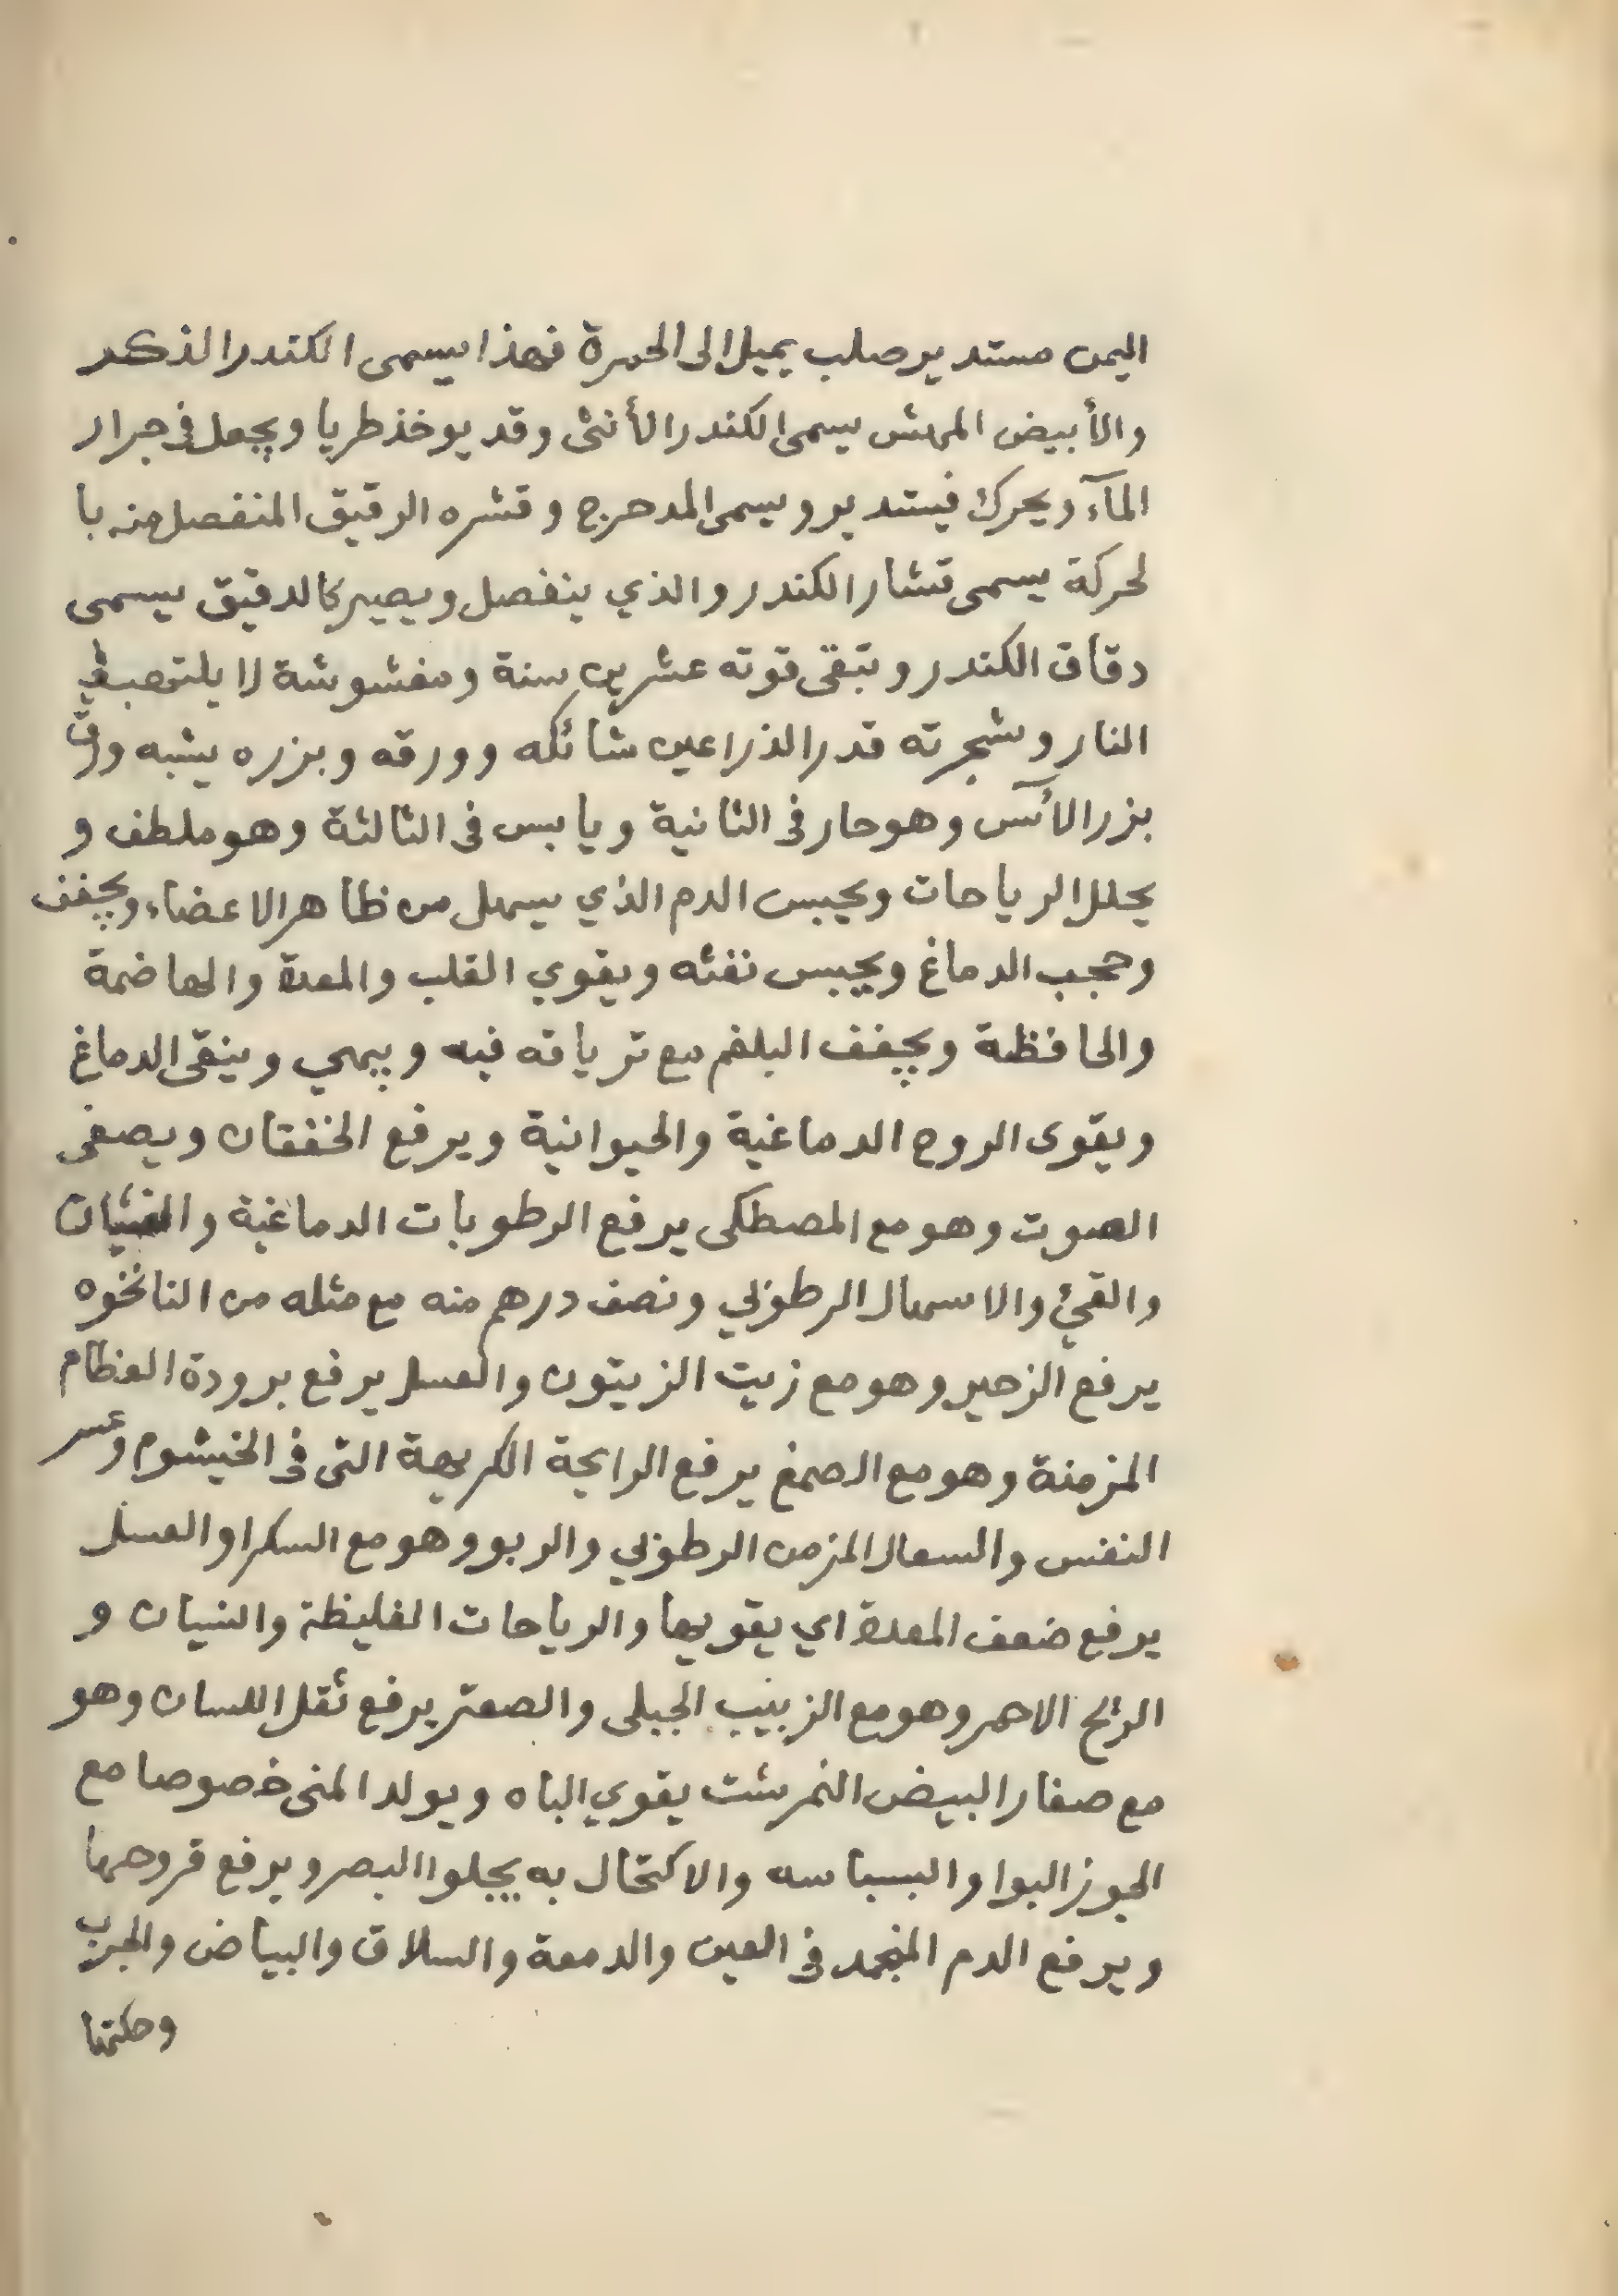 اليمن مستدير صلب يميل الى الحمرة فهذا يسمى الكندر الذكر
والأبيض المهش يسمى الكندر الأنثى وقد يوخذ طريا ويجعل فى جرار
المآء ويحرك فيستدير ويسمى المدحرج وقشره الرقيق المنفصل منه با
لحركة يسمى قشار الكندر والذي ينفصل ويصير كالدقيق يسمى
دقاق الكندر وتبقى قوته عشرين سنة ومغشوشة لا يلتهب في
النار وشجرته قدر الذراعين شائكه وورقه وبزره يشبه ورق
بزر الآس وهو حار فى الثانية ويابس فى الثالثة وهو ملطف و
يحلل الرياحات ويحبس الدم الذي يسهل من ظاهر الاعضاء ويجفف
وحجب الدماغ ويحبس نفثه ويقوي القلب والمعدة والهاضمة
والحافظة ويجفف البلغم مع ترياقه فيه ويبهي وينقى الدماغ
ويقوى الروح الدماغية والحيوانية ويرفع الخفقان ويصفى
الصوت وهو مع المصطكى يرفع الرطوبات الدماغية والغثيان
والقئ والاسهال الرطوبي ونصف درهم منه مع مثله من النانخوه
يرفع الزحير وهو مع زيت الزيتون والعسل يرفع برودة العظام
المزمنة وهو مع الصمغ يرفع الرايحة الكريهة التى فى الخيشوم وعسر
النفس والسعال المزمن الرطوبي والربو وهو مع السكر او العسل
يرفع ضعف المعدة اي يقويها والرياحات الغليظة والنسيان و
الريح الاحمر وهو مع الزبيب الجبلى والصعتر يرفع ثقل اللسان وهو
مع صفار البيض النمرشت يقوي الباه ويولد المنى خصوصا مع
الجوز البوا والبسباسه والاكتحال به يجلوا البصر ويرفع قروحها
ويرفع الدم المنجمد فى العين والدمعة والسلاق والبياض والجرب
وحكتها